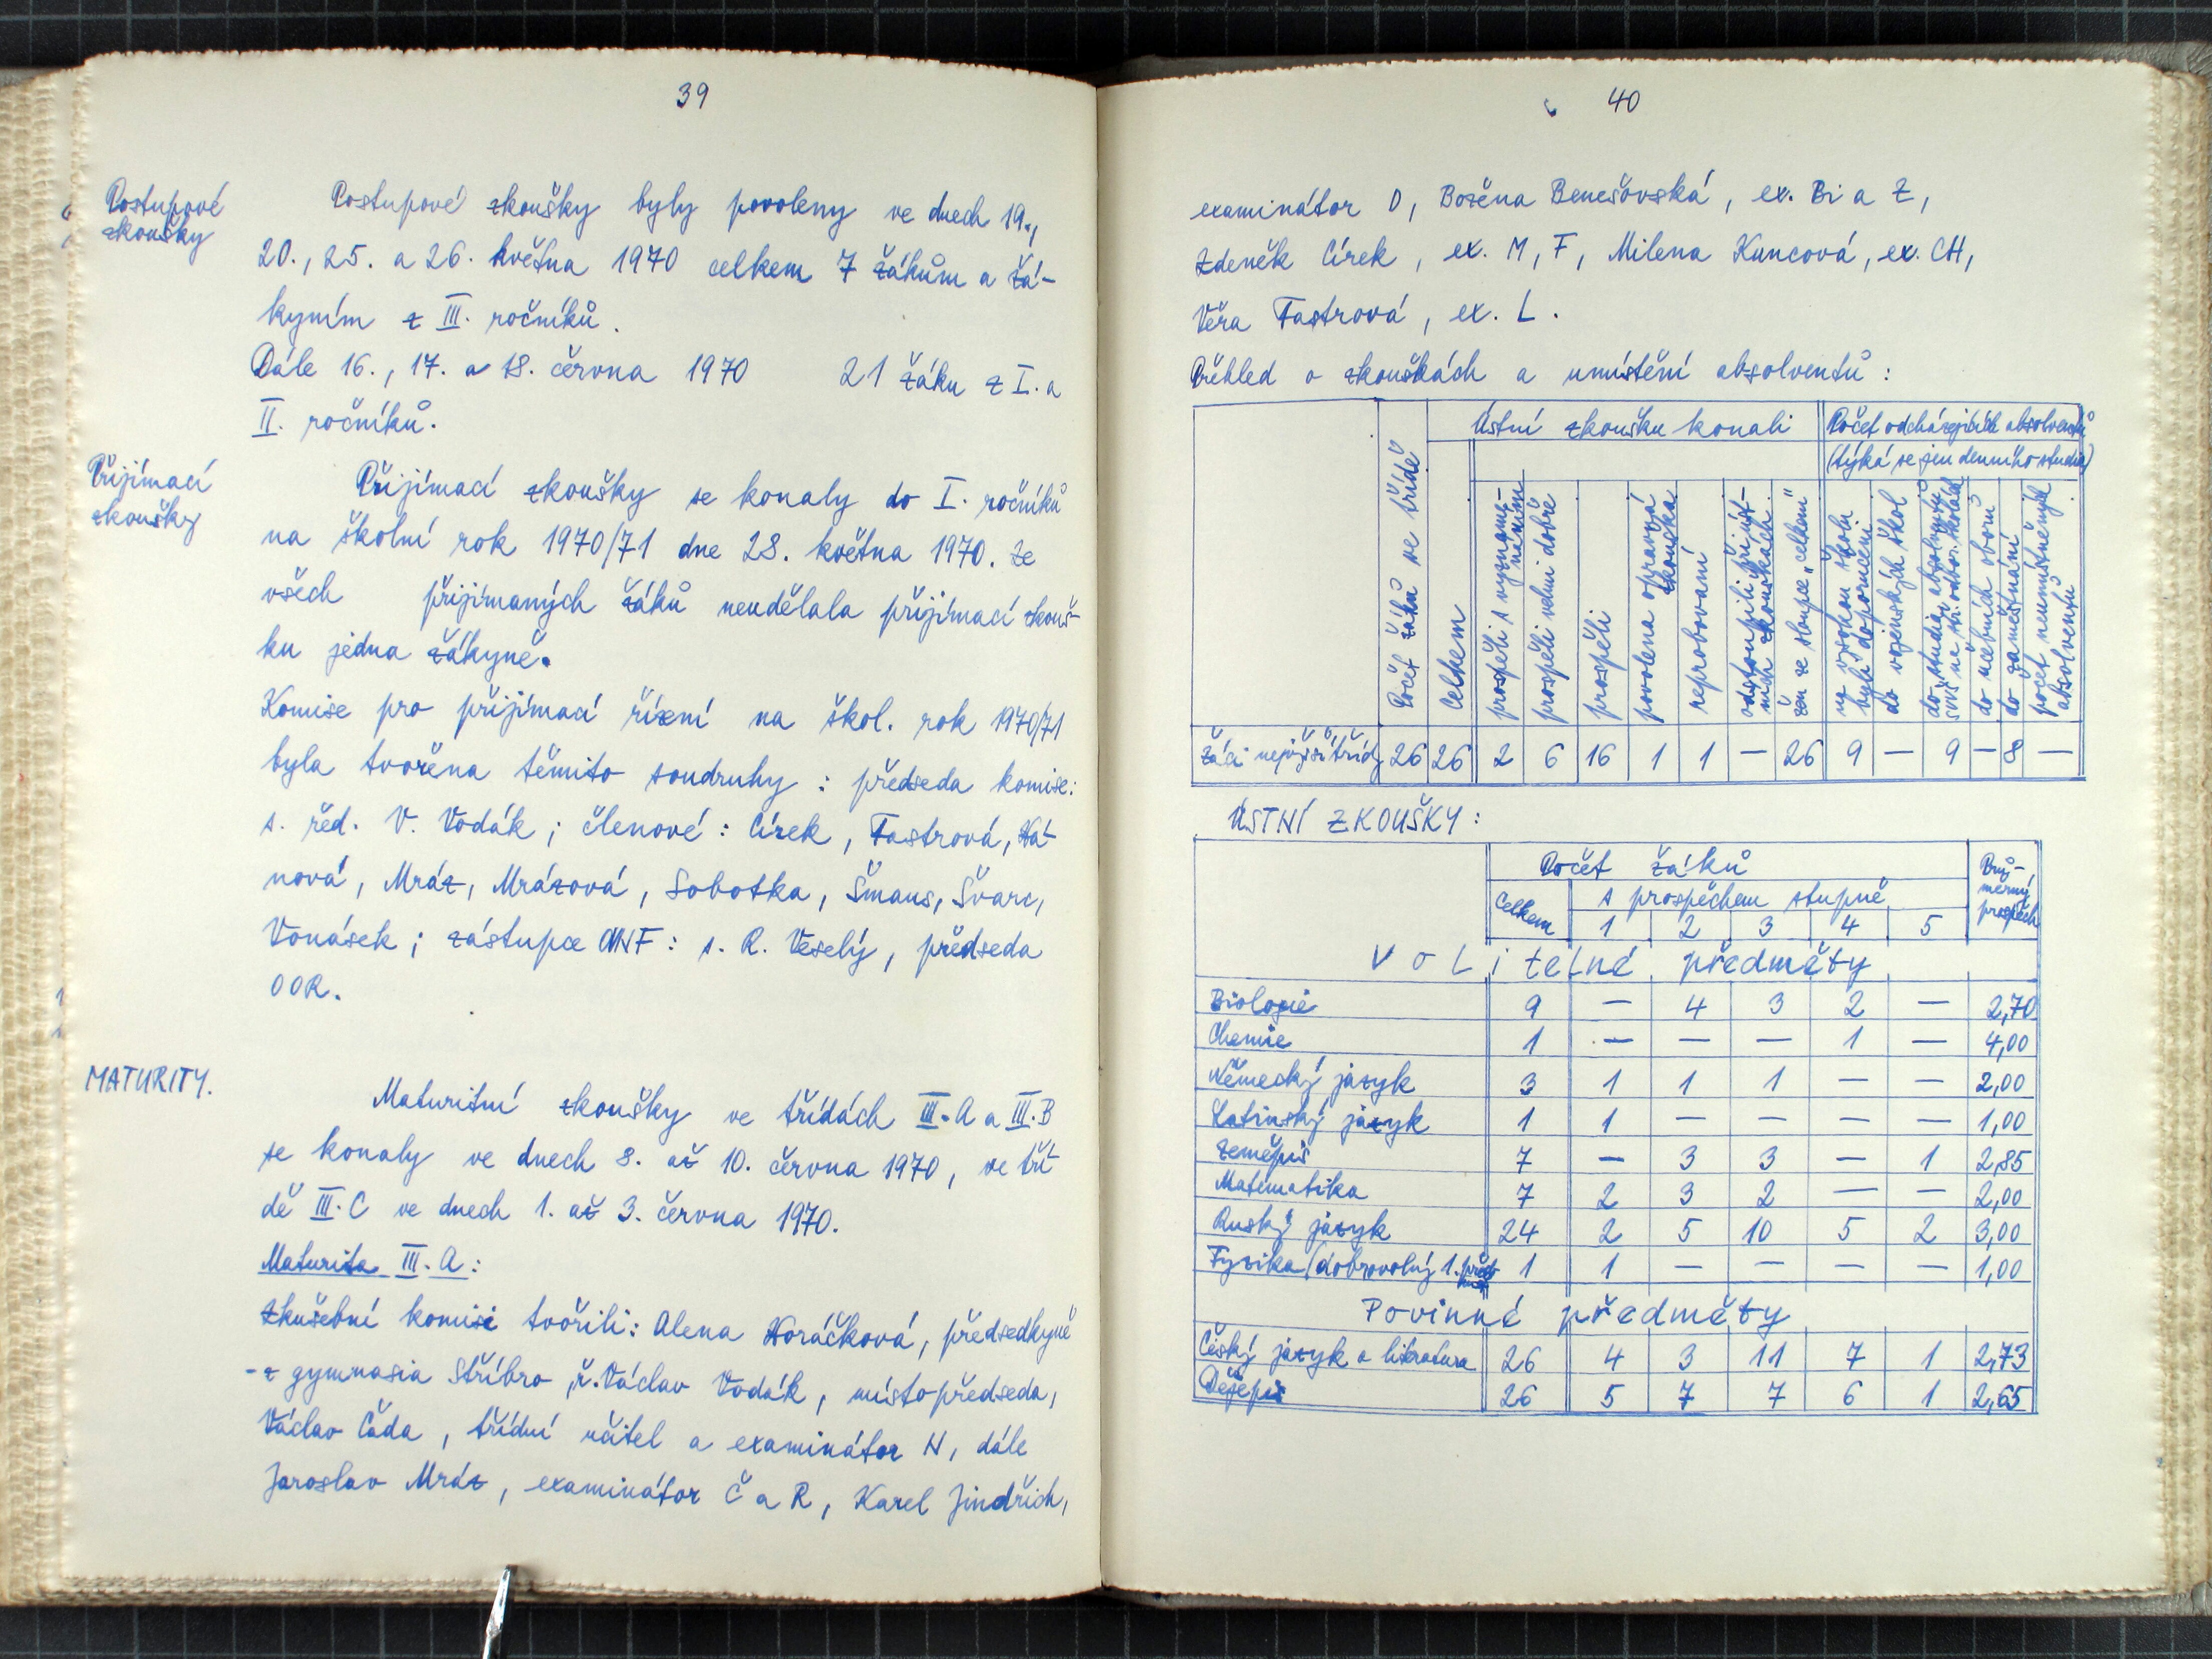 39
Postupové
zkoušky
Postupové zkoušky byly povoleny ve dnech 19.,
20., 25. a 26. května 1970 celkem 7 žákům a žá-
kyním z III. ročníků.
Dále 16., 17. a 18. června 1970 21 žáku z I. a
II. ročníků.
Přijímací
zkoušky
Přijímací zkoušky se konaly do I. ročníků
na školní rok 1970/71 dne 28. května 1970. Ze
všech přijímaných žáků neudělala přijímací zkouš-
ku jedna žákyně.
Komise pro přijímací řízení na škol. rok 1970/71
byla tvořena těmito soudruhy : předseda komise:
s. řed. V. Vodák ; členové : Círek, Fastrová, Ká-
nová, Mráz, Mrázová, Sobotka, Šmaus, Švarc,
Vonásek ; zástupce ONF : s. R. Veselý, předseda
OOR.
MATURITY.
Maturitní zkoušky ve třídách III.A a III.B
se konaly ve dnech 8. až 10. června 1970, ve tří-
dě III.C ve dnech 1. až 3. června 1970.
Maturita III.A :
Zkušební komisi tvořili : Alena Horáčková, předsedkyně
- z gymnasia Stříbro, ř. Václav Vodák, místopředseda,
Václav Čada, třídní učitel a examinátor N, dále
Jaroslav Mráz, examinátor Č a R, Karel Jindřich,
40
examinátor D, Božena Benešovská, ex. Bi a Z,
Zdeněk Círek, ex. M, F, Milena Kuncová, ex. CH,
Věra Fastrová, ex. L.
Přehled o zkouškách a umístění absolventů :
Počet žáků ve třídě
Ústní zkoušku konali
Počet odcházejících absolventů
(týká se jen denního studia)
Celkem
prospěli s vyzname-
náním
prospěli velmi dobře
prospěli
povolena opravná
zkouška
reprobováni
odstoupili při úst-
ních zkouškách
žen ze sloupce „celkem"
na vysokou školu
byli doporučeni
do vojenských škol
do studia absolventů
SVŠ na stř. odbor. školách
do učebních oborů
do zaměstnání
počet neumístněných
absolventů
Žáci nejvyšší třídy 26 26 2 6 16 1 1 — 26 9 — 9 — 8 —
ÚSTNÍ ZKOUŠKY :
Počet žáků
Prů-
měrný
prospěch
Celkem
s prospěchem stupně
1 2 3 4 5
Volitelné předměty
Biologie 9 — 4 3 2 — 2,70
Chemie 1 — — — 1 — 4,00
Německý jazyk 3 1 1 1 — — 2,00
Latinský jazyk 1 1 — — — — 1,00
Zeměpis 7 — 3 3 — 1 2,85
Matematika 7 2 3 2 — — 2,00
Ruský jazyk 24 2 5 10 5 2 3,00
Fyzika (dobrovolný 1. před- 1 1 — — — — 1,00
Povinné předměty
Český jazyk a literatura 26 4 3 11 7 1 2,73
Dějepis 26 5 7 7 6 1 2,65